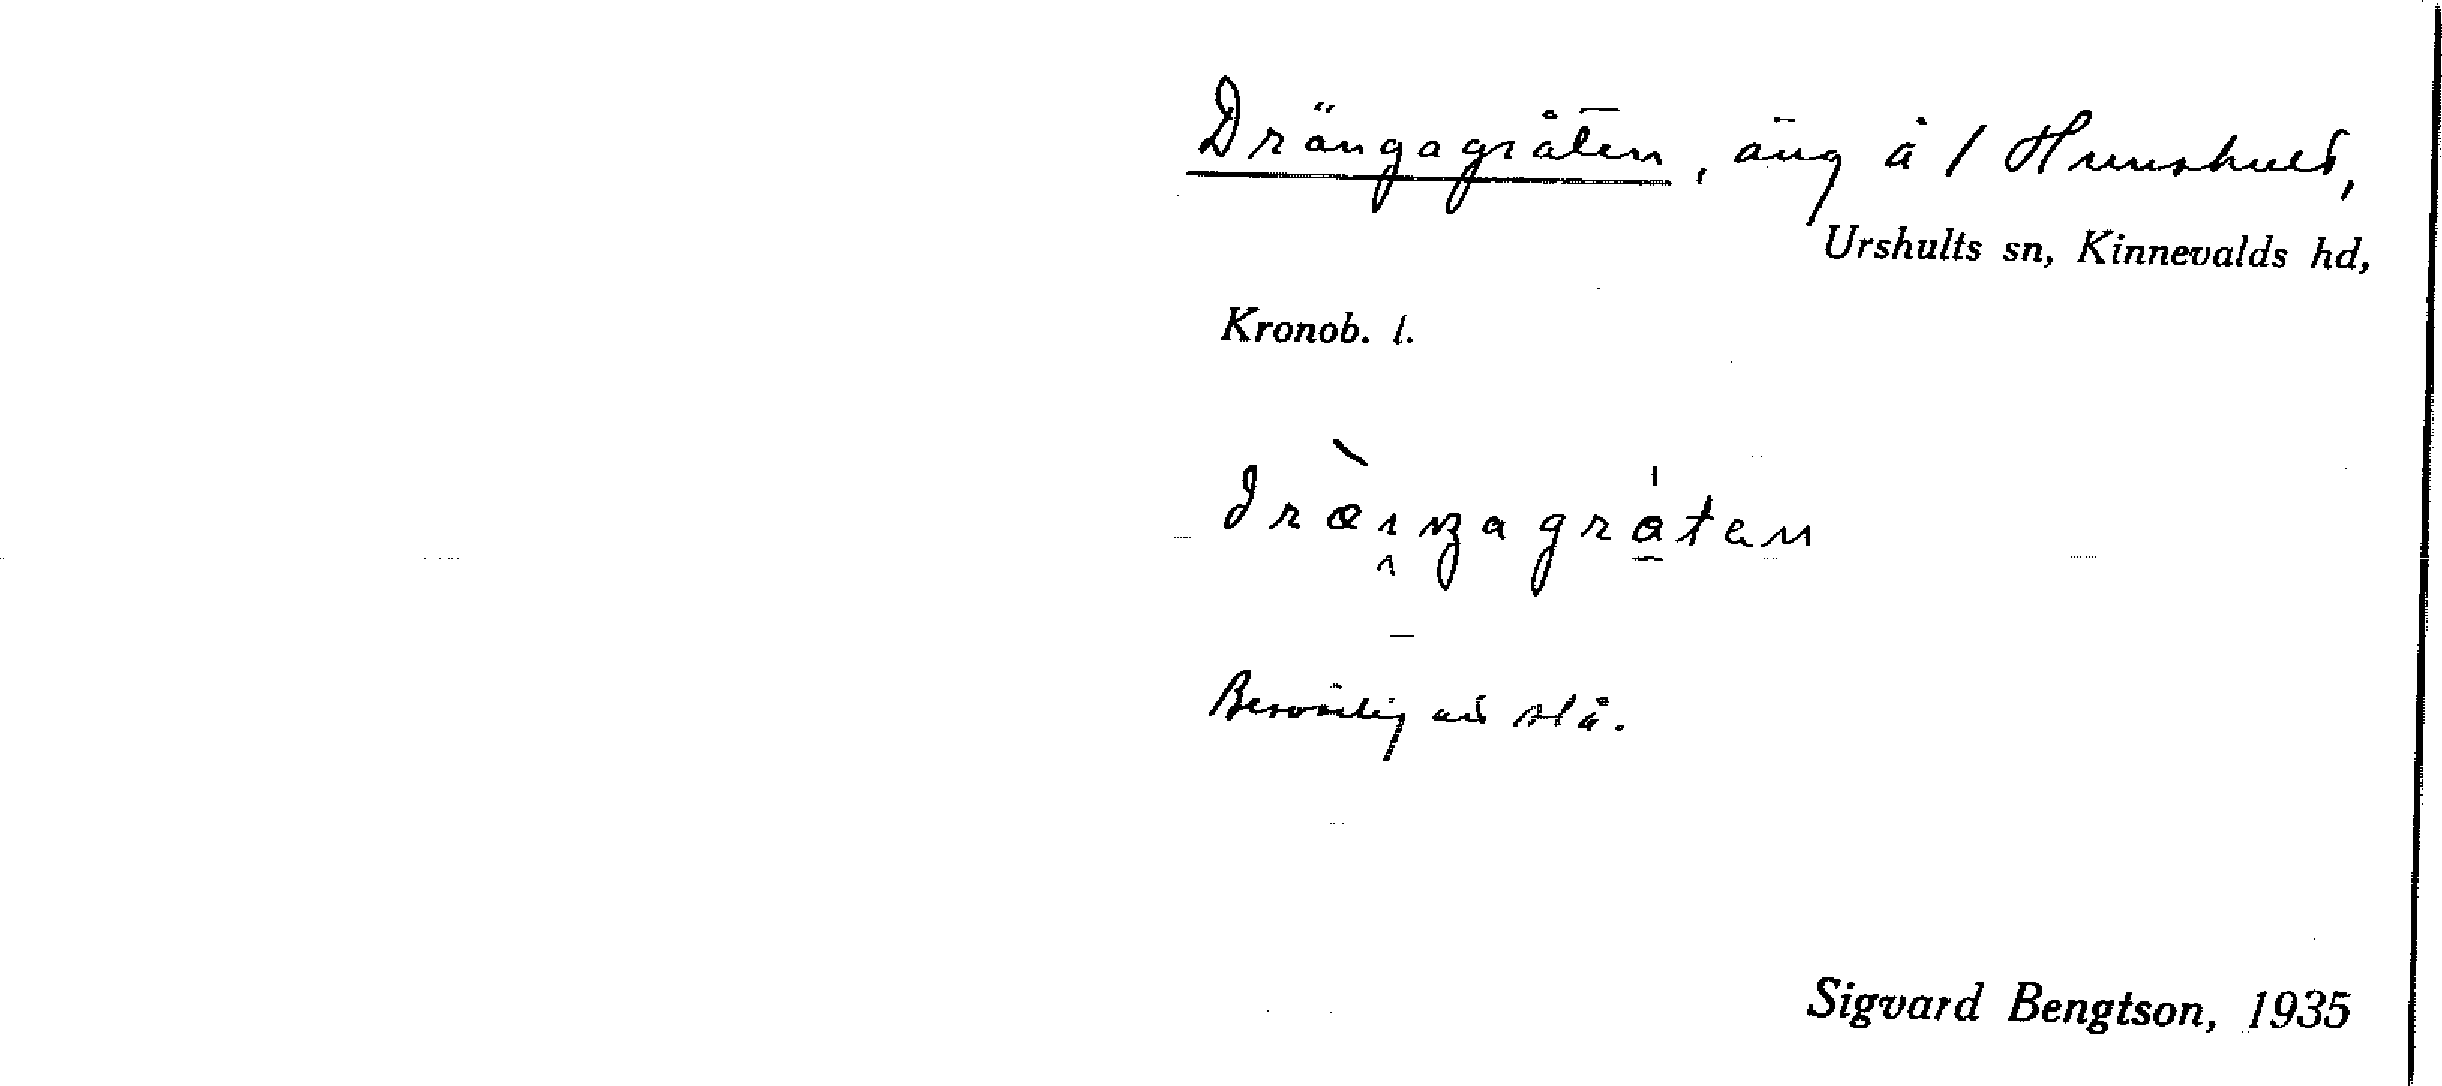 Drängagråten, äng å / Hunshult,
Urshults sn, Kinnevalds hd,
Kronob. l.
dræ̀i̯ŋagråtən
Besvärlig att slå.
Sigvard Bengtson, 1935